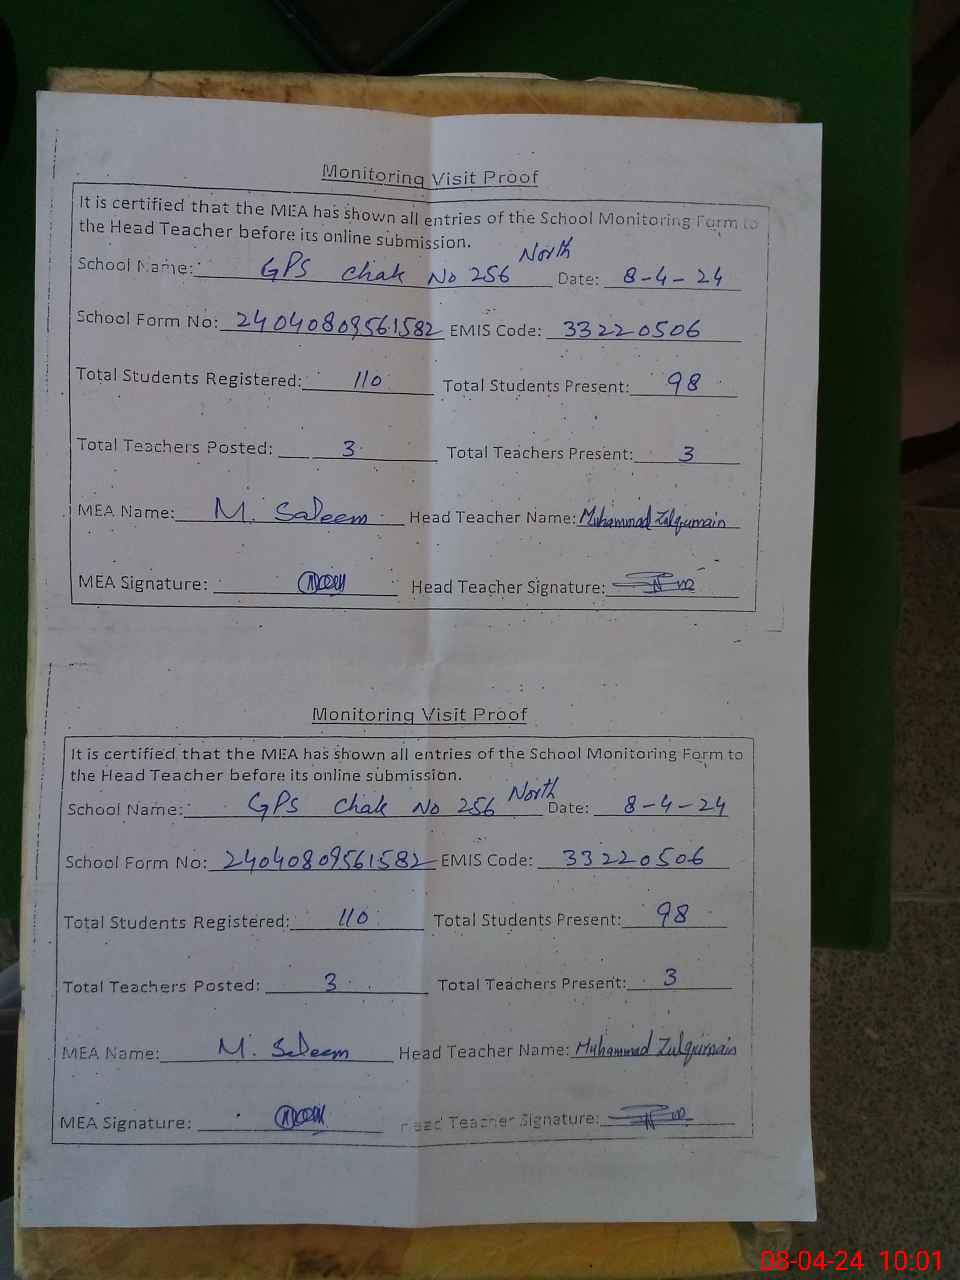 Monitoring Visit Proof
It is certified that the MEA has shown all entries of the School Monitoring Form to
the Head Teacher before its online submission.
School Name: GPS Chak No 256 North Date: 8-4-24
School Form No: 24040809561582 EMIS Code: 33220506
Total Students Registered: 110 Total Students Present: 98
Total Teachers Posted: 3 Total Teachers Present: 3
MEA Name: M. Saleem Head Teacher Name: Muhammad Zulqurnain
MEA Signature: Head Teacher Signature:
Monitoring Visit Proof
It is certified that the MEA has shown all entries of the School Monitoring Form to
the Head Teacher before its online submission.
School Name: GPS Chak No 256 North Date: 8-4-24
School Form No: 24040809561582 EMIS Code: 33220506
Total Students Registered: 110 Total Students Present: 98
Total Teachers Posted: 3 Total Teachers Present: 3
MEA Name: M. Saleem Head Teacher Name: Muhammad Zulqurnain
MEA Signature: Head Teacher Signature:
08-04-24 10:01